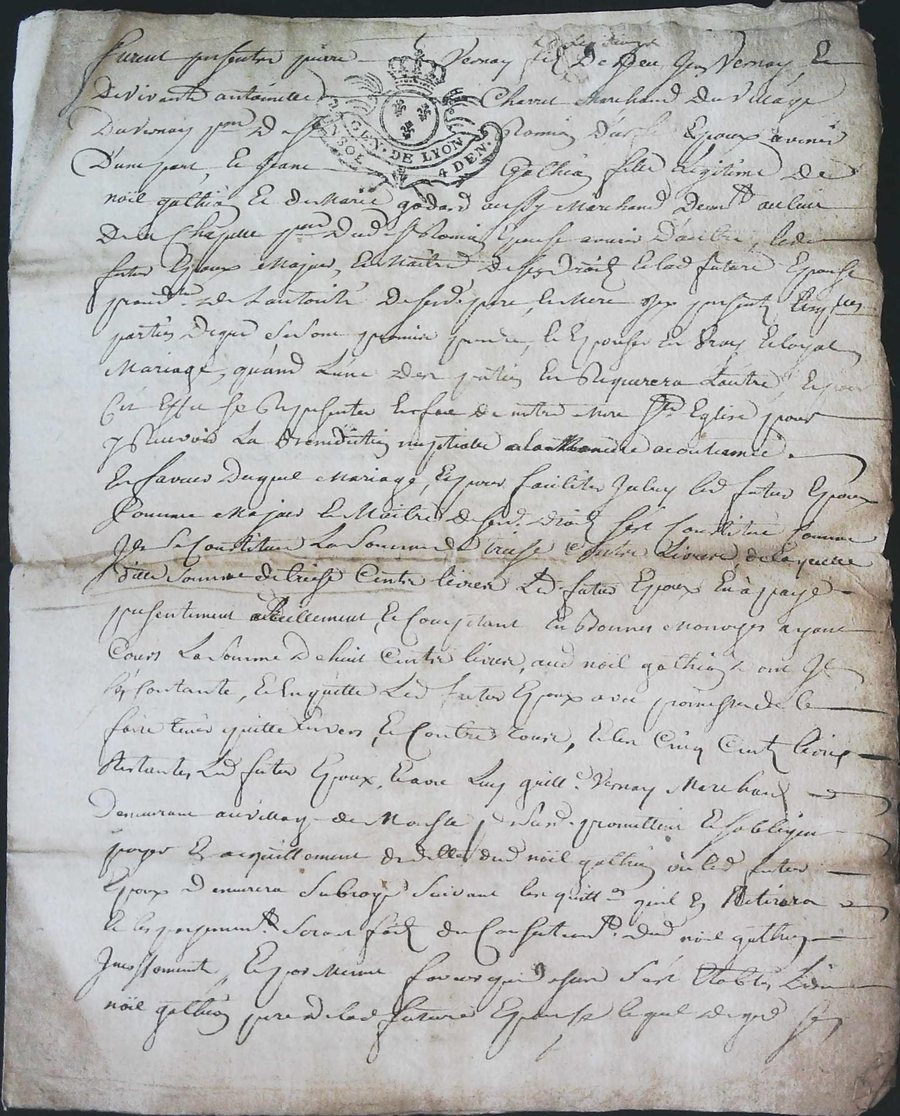 furent presents pierre Vernay fils De feu Vernay Et
De vivante antoinette Charret Marchand Du Village
Du Vernay Romin D'arche Epoux avenir
GEN. DE LYON
4 DEN.
SOL
D'une part, Et Jeane Gathion fille Legitime De
noël gathion Et de Marie godard aussy Marchand au lieu
De La Chapelle dud. St Romin Epouse avenir D'autre, led.
futur Epoux Majeur, Et Maitre de ses Droits Et lad future Epouse
De L'autorité de sesd. pere, Et Mere presents,
parties De gré se sont promis prendre, Et Epouser En Vray Et loyal
Mariage, quand L'une des parties En Requerera L'autre, Et pour
Cet Effet se Representer En face de notre Mere Ste Eglise pour
y Recevoir La Benediction nuptiale a la Maniere acoutumée.
En faveur Duquel Mariage, Et pour faciliter Iceluy led futur Epoux
Comme Majeur Et Maitre de sesd. droits s'est Constitué Comme
Il se Constitue La somme de treise Cents Livres de laquelle
d'itte somme de treise Cents livres Led futur Epoux En a payé
presentement Reellement, Et Comptant En Bonnes Monoyes ayant
Cours La somme De huit Cents livres, aud noël gathion
Contante, Et En quitte Led futur Epoux avec promesse de le
faire tenir quitte Envers, Et Contre tous, Et les Cinq Cents livres
Restantes Led futur Epoux, Et avec Luy Vernay Marchand
Demeurant au Village de promettent Et s'obligent
payer En acquittement de dud noël gathion led futur
Epoux Demeurera Subrogé suivant les quitt.es qu'il En Retirera
Et les payements seront faits du Consentement dud noël gathion
Incessament, Et par Meme faveur que dessus s'est Etably Led
noël gathion pere de lad future Epouse lequel de gré